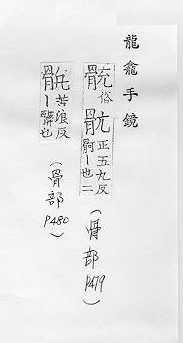 龍龕手鏡
俗 正五九反
｜也二
(骨部 P479)
苦浪反
｜髒也
(骨部 P480)